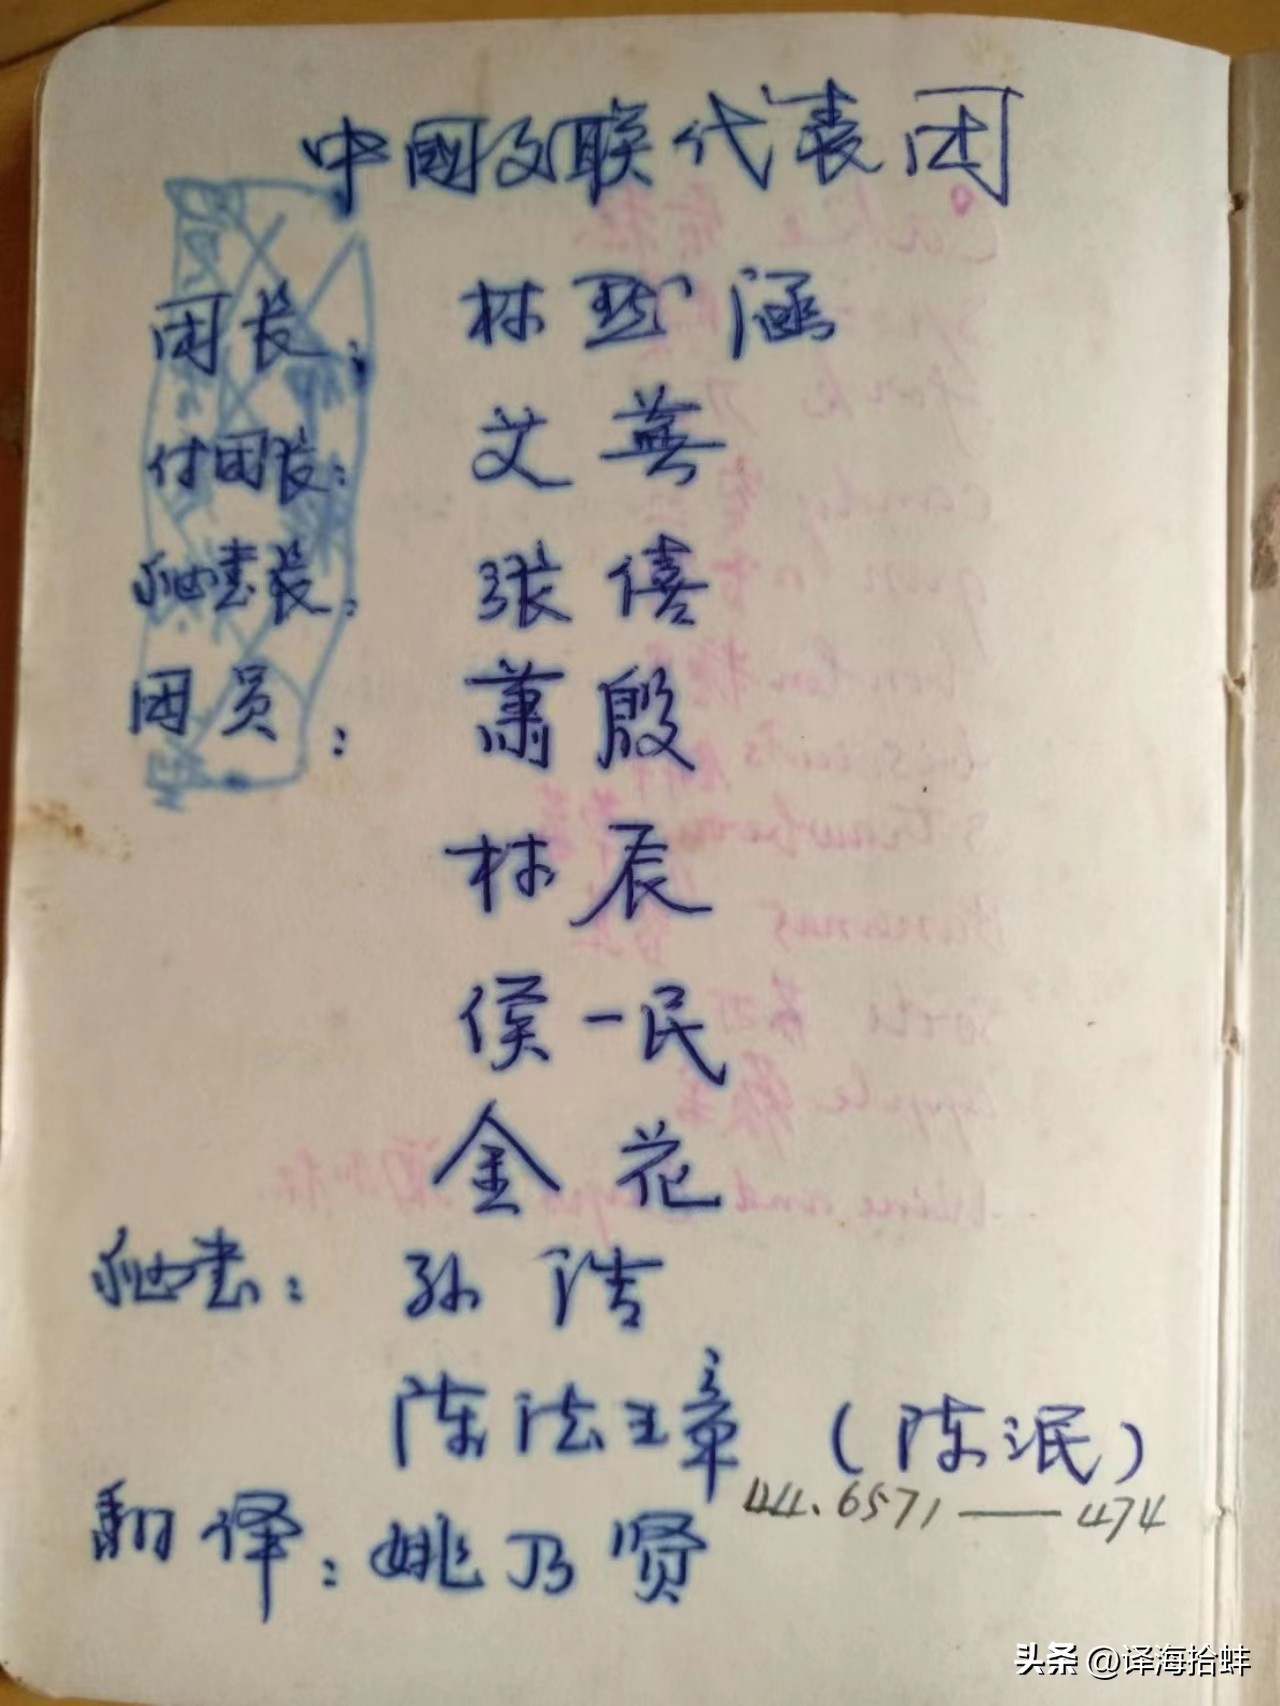 中國文联代表团
团长: 林默涵
付团长: 艾芜
秘书长: 张僖
团员: 萧殷
林辰
侯一民
金花
秘书: 孙浩
陈法璋 (陈泯)
44.6571——474
翻译: 姚乃贤
头条 @译海拾蚌